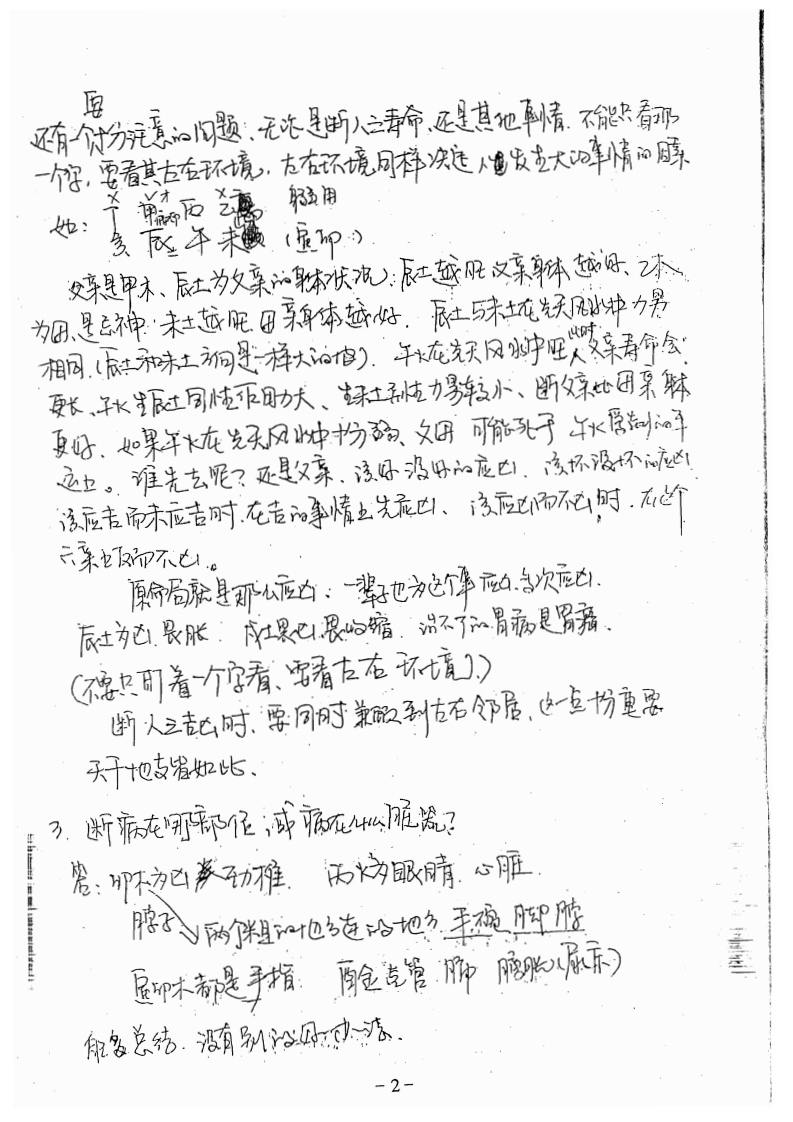 要
还有一个十分注意的问题、无论是断人之寿命、还是其他事情、不能只看那
一个字，要看其左右环境，左右环境同样决定人发生大的事情的因素
如： 丁 甲 丙 乙
亥 辰 午 未 （寅卯）
父亲是甲木、辰土为父亲的身体状况，辰土越旺父亲身体越好、乙木
为母、是忌神，未土越旺母亲身体越好． 辰土与未土在先天风水中力另
相同．（辰土和未土方向是一样大的值）． 午火在先天风水中旺 此时人父亲寿命会
更长、午火生辰土同性作用力大、生未土异性力量较小、断父亲比母亲身体
更好． 如果午火在先天风水中十分弱、父母可能死于 午火 的年
运上。谁先去呢？还是父亲、该好没好的应凶． 该坏没坏的应凶
该应吉而未应吉时．在吉的事情上先应凶、该应凶而不凶时．在这个
六亲上反而不凶。
原命局就是那么应凶，一辈子也为这个事应凶多次应凶．
辰土为凶畏胀． 戌土畏凶畏收缩． 治不了的胃病是胃
（不要只盯着一个字看、要看左右环境）．）
断人之吉凶时、要同时兼顾到左右邻居、这一点十分重要
天干地支皆如此、
3． 断病在哪部位，或病在什么脏器？
答：卯木为凶 颈椎． 丙火为眼睛． 心脏
脖子 两个粗的地方连的地方 手碗 脚脖
寅卯木都是手指． 酉金 气管 肺 膀胱（尿东）
能多总结．没有别的好办法．
- 2 -